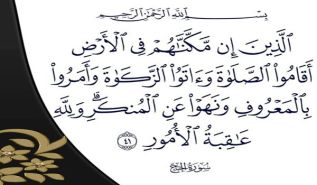 بِسْمِ ٱللَّهِ ٱلرَّحْمَٰنِ ٱلرَّحِيمِ
ٱلَّذِينَ إِن مَّكَّنَّٰهُمْ فِى ٱلْأَرْضِ
أَقَامُوا۟ ٱلصَّلَوٰةَ وَءَاتَوُا۟ ٱلزَّكَوٰةَ وَأَمَرُوا۟
بِٱلْمَعْرُوفِ وَنَهَوْا۟ عَنِ ٱلْمُنكَرِ ۗ وَلِلَّهِ
عَٰقِبَةُ ٱلْأُمُورِ ٤١
سُورَةُ الحَجّ